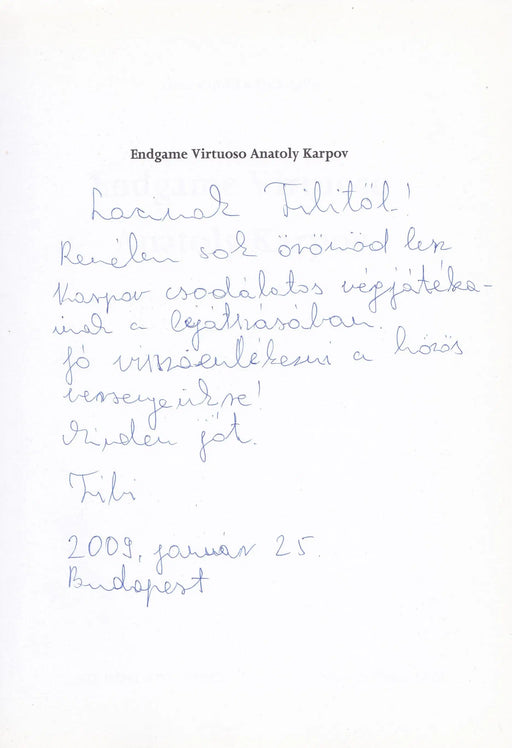 Endgame Virtuoso Anatoly Karpov
Lacinak Tibitől!
Remélem sok örömöd lesz
Karpov csodálatos végjátéka-
inak a lejátszásában.
Jó visszaemlékezni a közös
versenyeinkre!
Minden jót.
Tibi
2009, január 25.
Budapest